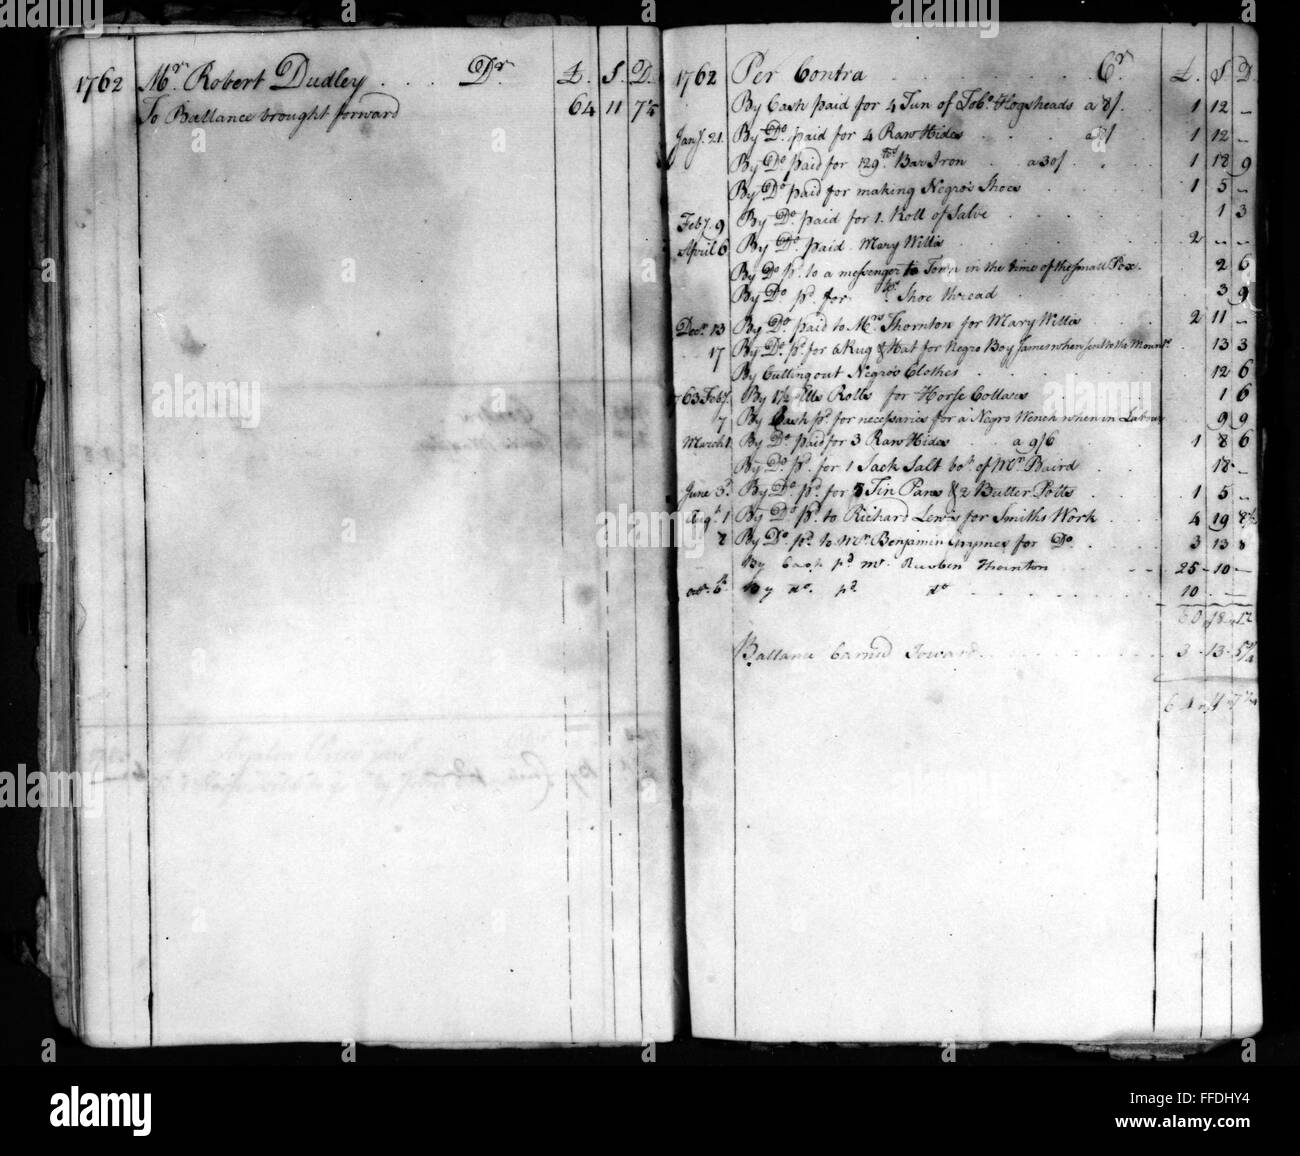 1762 Mr. Robert Dudley . . . . Dr £. S. D.
To Ballance brought forward 64 11 7¼
1762 Per Contra Cr £. S D.
By Cash paid for 4 Tun of Tobo. Hogsheads a 8/. 1 12 —
Jany. 21. By Do. paid for 4 Raw Hides a 8/ 1 12 —
By Do. paid for 129 Bar Iron a 30/ 1 18 9
By Do. paid for making Negro's Shoes 1 5 —
Feby. 9 By Do. paid for 1. Roll of Salve 1 3
April 6 By Do. paid Mary Willis 2 — —
By Do. pd. to a messenger to Town in the time of the small Pox. 2 6
By Do. pd. for Shoe thread 3 9
Decr. 13 By Do. paid to Mrs. Thornton for Mary Willis 2 11 —
17 By Do. pd. for a Rug & Hat for Negro Boy James when sent to the Mount. 13 3
By Cutting out Negro's Clothes 12 6
1763 Feby. By 1½ Ells Rolls for Horse Collars 1 6
7 By Cash pd. for necessaries for a Negro Wench when in Labour 9 9
March 1 By Do. paid for 3 Raw Hides a 9/6 1 8 6
By Do. pd. for 1 Sack Salt bot. of Mr. Baird 18 —
June 3d. By Do. pd. for 5 Tin Pans & 2 Butter Potts 1 5 —
Augt. 1 By Do. pd. to Richard Lewis for Smiths Work 4 19 8½
2 By Do. pd. to Mr. Benjamin Grymes for Do. 3 13 8
By Cash pd. Mr. Reuben Thornton 25 - 10 —
Octr. 6th By do. pd. do 10 . —
60 18
Ballance Carried Forward 3 - 13 - 5¼
64 11 7¼
alamy
FFDHY4
www.alamy.com